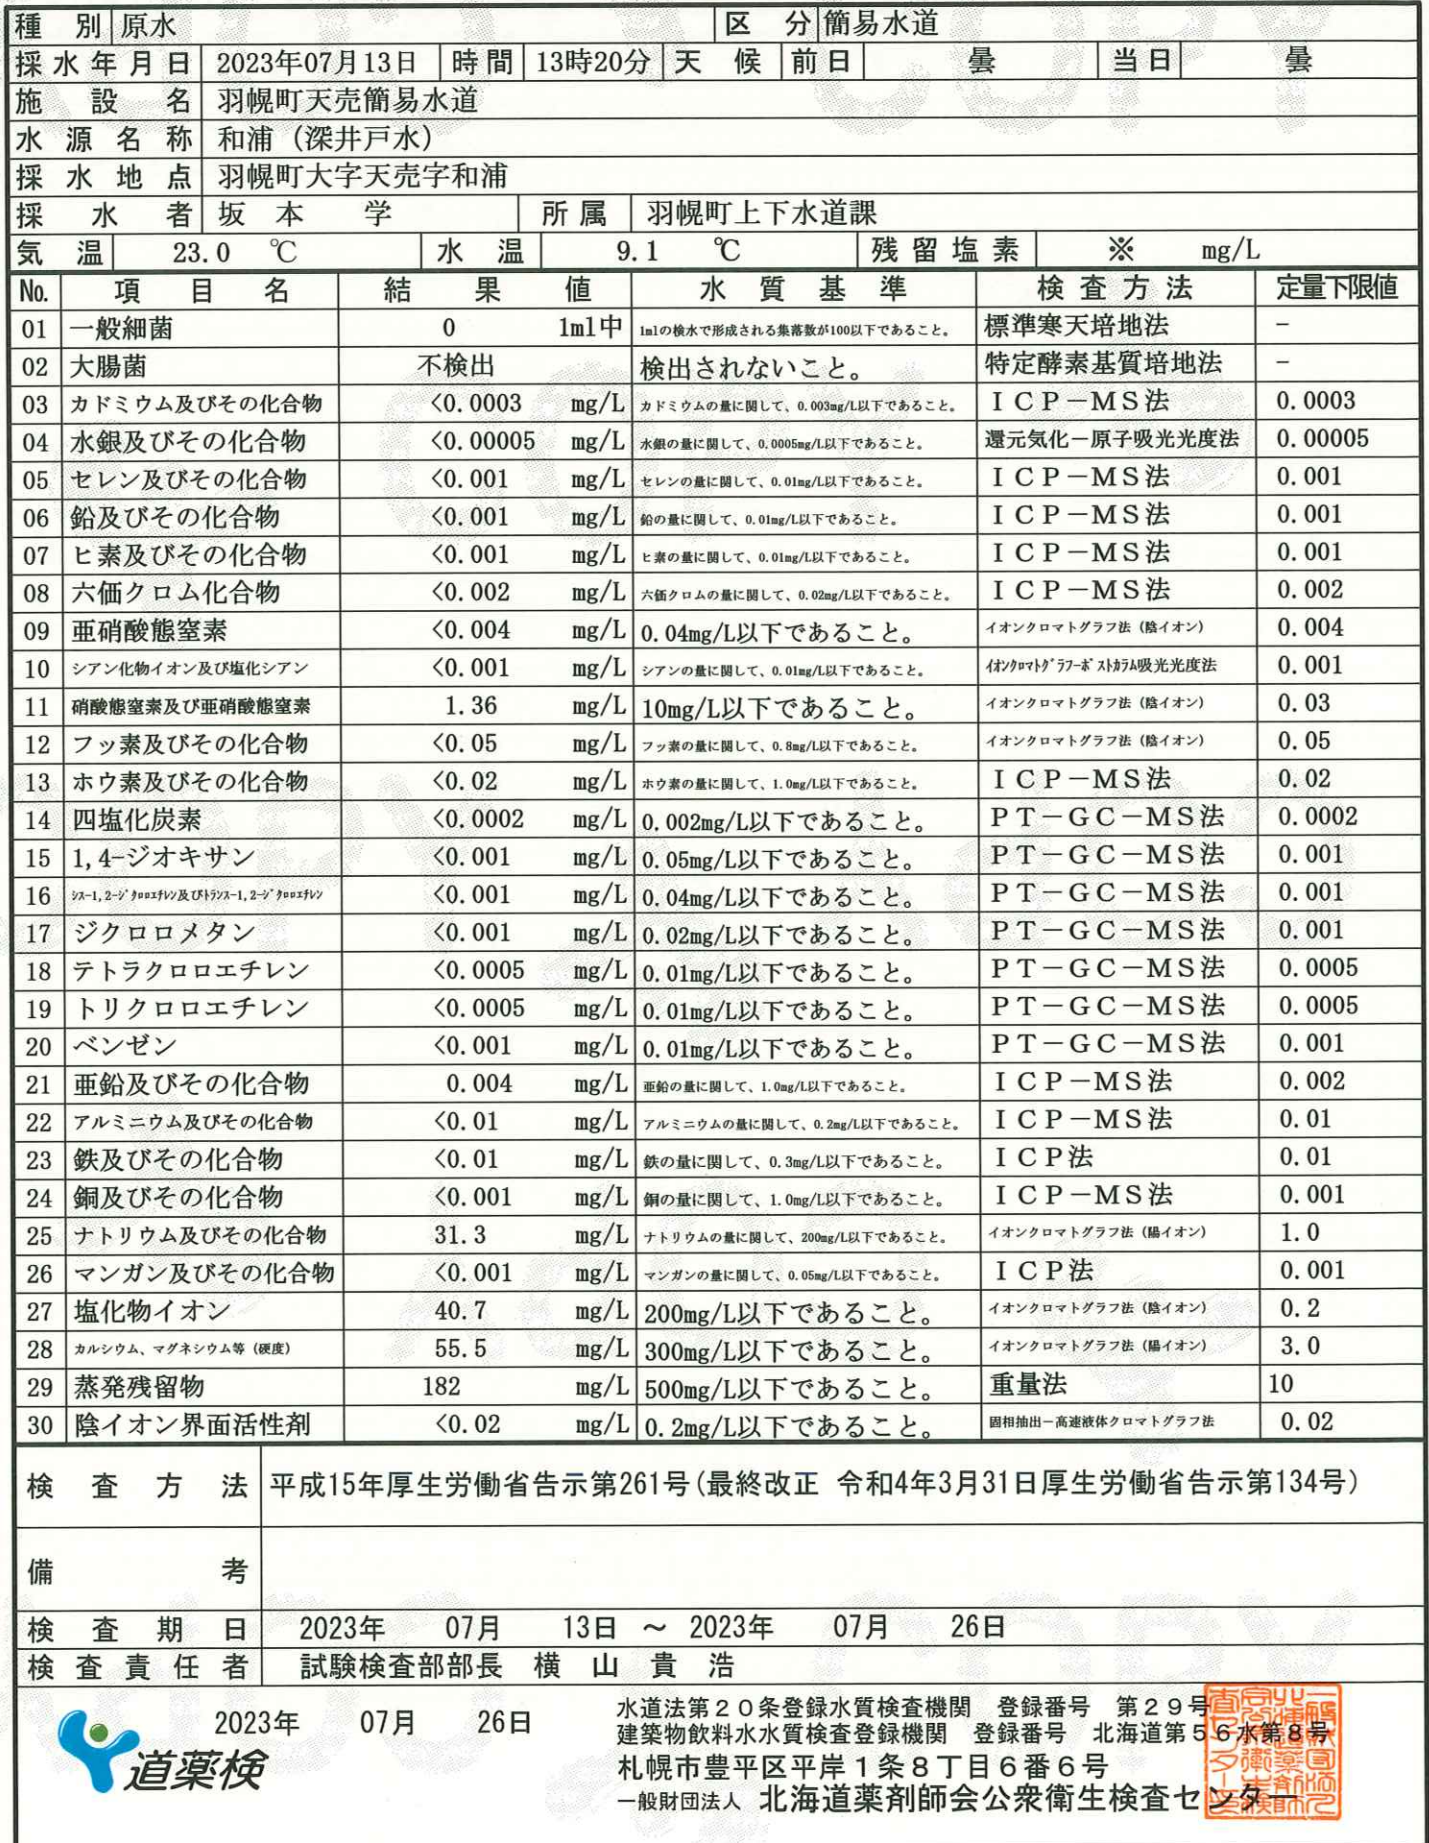 種 別 原水 区 分 簡易水道
採水年月日 2023年07月13日 時間 13時20分 天 候 前日 曇 当日 曇
施 設 名 羽幌町天売簡易水道
水 源 名 称 和浦（深井戸水）
採 水 地 点 羽幌町大字天売字和浦
採 水 者 坂 本 学 所属 羽幌町上下水道課
気 温 23.0 ℃ 水 温 9.1 ℃ 残留塩素 ※ mg/L
No. 項 目 名 結 果 値 水 質 基 準 検 査 方 法 定量下限値
01 一般細菌 0 1ml中 1mlの検水で形成される集落数が100以下であること。 標準寒天培地法 −
02 大腸菌 不検出 検出されないこと。 特定酵素基質培地法 −
03 カドミウム及びその化合物 <0.0003 mg/L カドミウムの量に関して、0.003mg/L以下であること。 ICP−MS法 0.0003
04 水銀及びその化合物 <0.00005 mg/L 水銀の量に関して、0.0005mg/L以下であること。 還元気化−原子吸光光度法 0.00005
05 セレン及びその化合物 <0.001 mg/L セレンの量に関して、0.01mg/L以下であること。 ICP−MS法 0.001
06 鉛及びその化合物 <0.001 mg/L 鉛の量に関して、0.01mg/L以下であること。 ICP−MS法 0.001
07 ヒ素及びその化合物 <0.001 mg/L ヒ素の量に関して、0.01mg/L以下であること。 ICP−MS法 0.001
08 六価クロム化合物 <0.002 mg/L 六価クロムの量に関して、0.02mg/L以下であること。 ICP−MS法 0.002
09 亜硝酸態窒素 <0.004 mg/L 0.04mg/L以下であること。 イオンクロマトグラフ法（陰イオン） 0.004
10 シアン化物イオン及び塩化シアン <0.001 mg/L シアンの量に関して、0.01mg/L以下であること。 ｲｵﾝｸﾛﾏﾄｸﾞﾗﾌｰﾎﾟｽﾄｶﾗﾑ吸光光度法 0.001
11 硝酸態窒素及び亜硝酸態窒素 1.36 mg/L 10mg/L以下であること。 イオンクロマトグラフ法（陰イオン） 0.03
12 フッ素及びその化合物 <0.05 mg/L フッ素の量に関して、0.8mg/L以下であること。 イオンクロマトグラフ法（陰イオン） 0.05
13 ホウ素及びその化合物 <0.02 mg/L ホウ素の量に関して、1.0mg/L以下であること。 ICP−MS法 0.02
14 四塩化炭素 <0.0002 mg/L 0.002mg/L以下であること。 PT−GC−MS法 0.0002
15 1,4-ジオキサン <0.001 mg/L 0.05mg/L以下であること。 PT−GC−MS法 0.001
16 ｼｽ-1,2-ｼﾞｸﾛﾛｴﾁﾚﾝ及びﾄﾗﾝｽ-1,2-ｼﾞｸﾛﾛｴﾁﾚﾝ <0.001 mg/L 0.04mg/L以下であること。 PT−GC−MS法 0.001
17 ジクロロメタン <0.001 mg/L 0.02mg/L以下であること。 PT−GC−MS法 0.001
18 テトラクロロエチレン <0.0005 mg/L 0.01mg/L以下であること。 PT−GC−MS法 0.0005
19 トリクロロエチレン <0.0005 mg/L 0.01mg/L以下であること。 PT−GC−MS法 0.0005
20 ベンゼン <0.001 mg/L 0.01mg/L以下であること。 PT−GC−MS法 0.001
21 亜鉛及びその化合物 0.004 mg/L 亜鉛の量に関して、1.0mg/L以下であること。 ICP−MS法 0.002
22 アルミニウム及びその化合物 <0.01 mg/L アルミニウムの量に関して、0.2mg/L以下であること。 ICP−MS法 0.01
23 鉄及びその化合物 <0.01 mg/L 鉄の量に関して、0.3mg/L以下であること。 ICP法 0.01
24 銅及びその化合物 <0.001 mg/L 銅の量に関して、1.0mg/L以下であること。 ICP−MS法 0.001
25 ナトリウム及びその化合物 31.3 mg/L ナトリウムの量に関して、200mg/L以下であること。 イオンクロマトグラフ法（陽イオン） 1.0
26 マンガン及びその化合物 <0.001 mg/L マンガンの量に関して、0.05mg/L以下であること。 ICP法 0.001
27 塩化物イオン 40.7 mg/L 200mg/L以下であること。 イオンクロマトグラフ法（陰イオン） 0.2
28 カルシウム、マグネシウム等（硬度） 55.5 mg/L 300mg/L以下であること。 イオンクロマトグラフ法（陽イオン） 3.0
29 蒸発残留物 182 mg/L 500mg/L以下であること。 重量法 10
30 陰イオン界面活性剤 <0.02 mg/L 0.2mg/L以下であること。 固相抽出−高速液体クロマトグラフ法 0.02
検 査 方 法 平成15年厚生労働省告示第261号(最終改正 令和4年3月31日厚生労働省告示第134号)
備 考
検 査 期 日 2023年 07月 13日 ～ 2023年 07月 26日
検 査 責 任 者 試験検査部部長 横 山 貴 浩
2023年 07月 26日
道薬検
水道法第２０条登録水質検査機関 登録番号 第２９号
建築物飲料水水質検査登録機関 登録番号 北海道第５６水第８号
札幌市豊平区平岸１条８丁目６番６号
一般財団法人 北海道薬剤師会公衆衛生検査センター